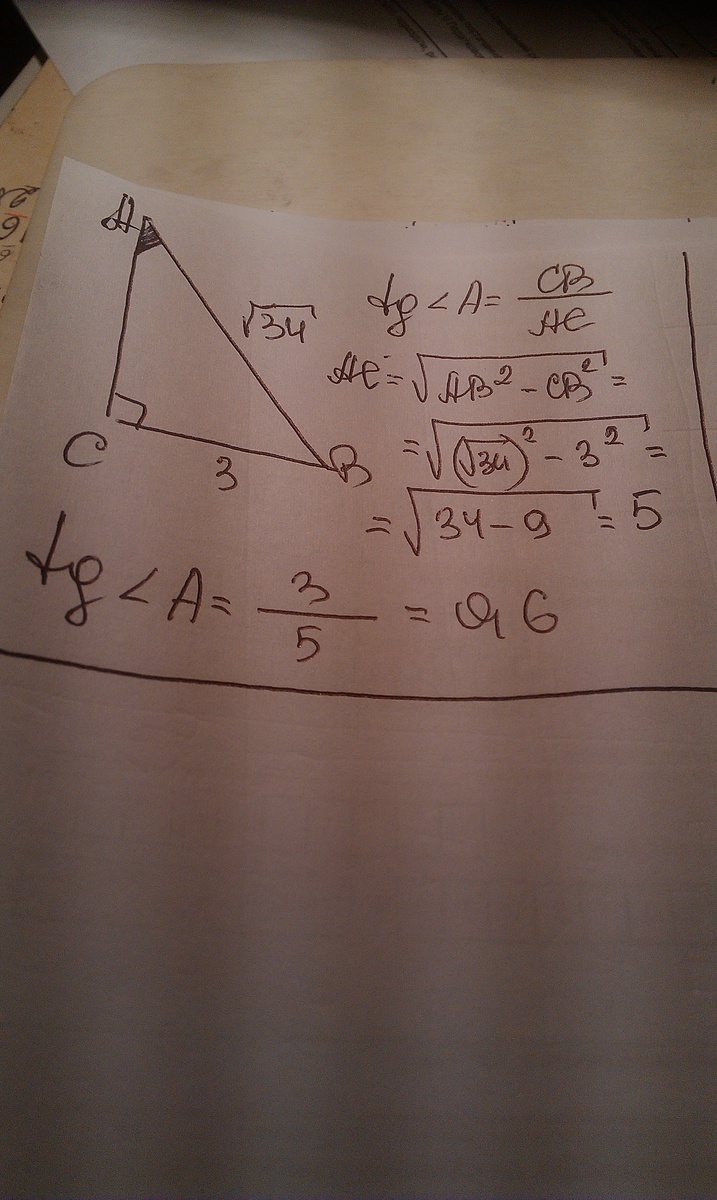 A
√34
C
3
B
tg < A = CB / AC
AC = √(AB² - CB²) =
= √((√34)² - 3²) =
= √(34 - 9) = 5
tg < A = 3 / 5 = 0,6